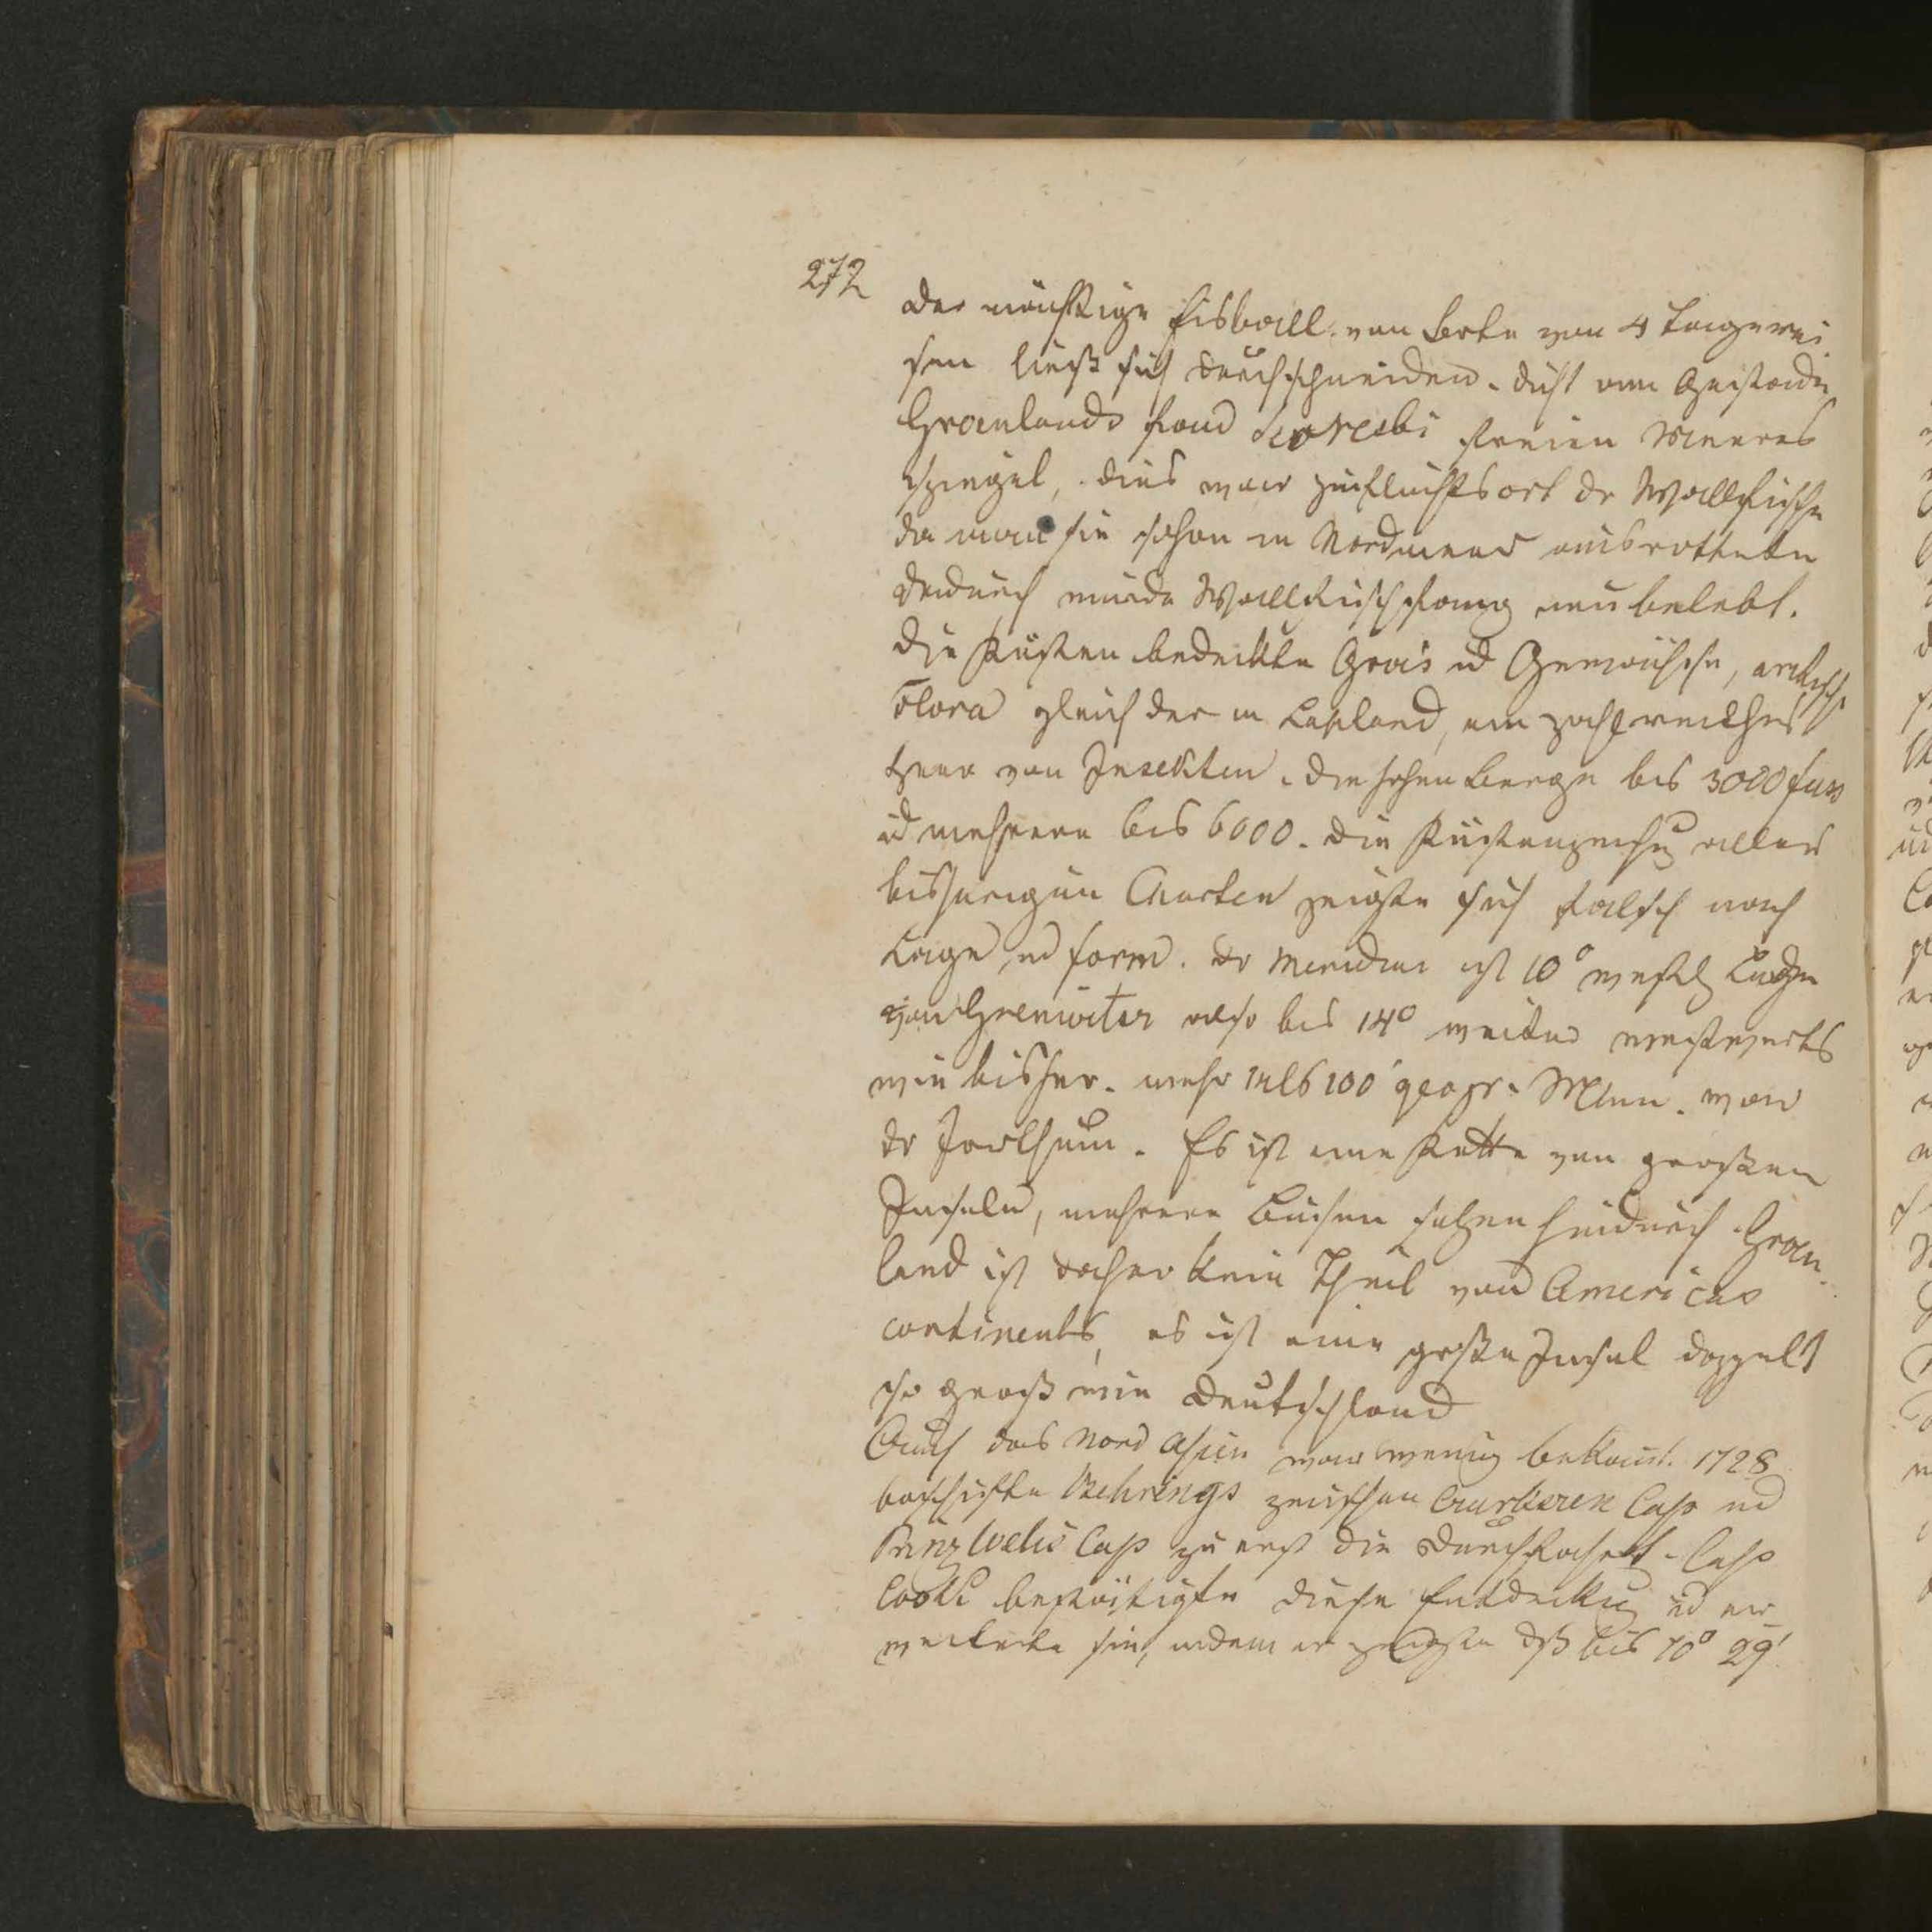 272
der mächtige Eiswall von Breite von 4 Tagerei
sen ließ sich durchschneiden. dicht am Gestade
Groenlands fand Scoresbi freien Meeres
spiegel, dies war Zufluchtsort dr Wallfische
da man sie schon in Nordmeer ausrottete
dadurch wurde Wallfischfang neu belebt.
die Küsten bedeckte Gras ud Gewächse, arktische
Flora gleich der in Lapland, ein zahlreiches
Heer von Insekten. die hohen Berge bis 3000 fuss
ud mehrere bis 6000. die Küstenzeichng aller
bisherigen Charten zeigte sich falsch nach
Lage ud form. dr Meridian ist 10° westl Länge
von Grenwitsz also bis 14° weiter westwerts
wie bisher. mehr als 100 geogr. Mln. war
dr Irrthum. Es ist eine Kette von großen
Inseln, mehrere Busen sezen hindurch Groen
land ist daher kein Theil von Americas
continents, es ist eine große Insel doppelt
so groß wie Deutschland
Auch das Nord Asien war wenig bekannt. 1728
beschiffte Behrings zwischen Cap ud
Prinz Welis Cap zu erst die Durchfahrt. Cap
Cook bestätigte diese Entdeckug ud er
weiterte sie, indem er zeigte dß bis 70° 29'